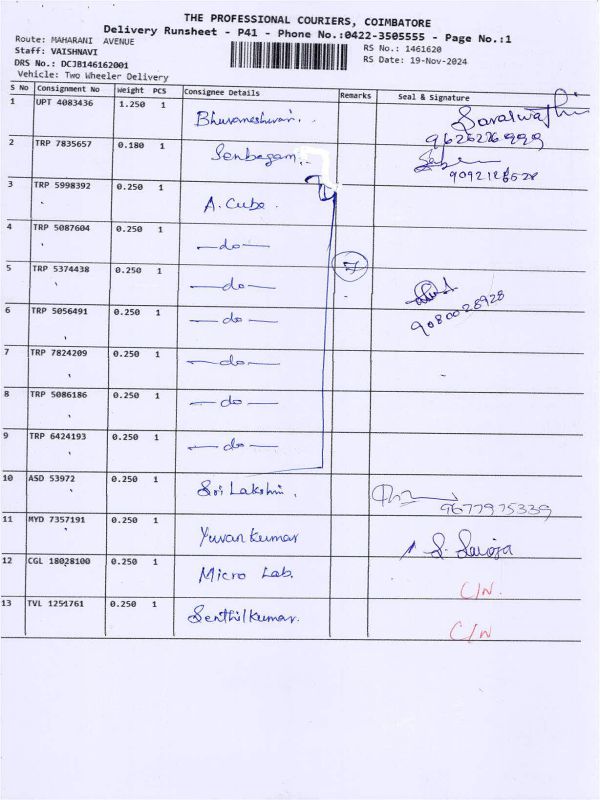 THE PROFESSIONAL COURIERS, COIMBATORE
Delivery Runsheet - P41 - Phone No.:0422-3505555 - Page No.:1
Route: MAHARANI AVENUE
RS No.: 1461620
Staff: VAISHNAVI
RS Date: 19-Nov-2024
DRS No.: DCJB146162001
Vehicle: Two Wheeler Delivery
S No Consignment No Weight PCS Consignee Details Remarks Seal & Signature
1 UPT 4083436 1.250 1 Bhuvaneshwari. Saraswathi
9626276999
2 TRP 7835657 0.180 1 Senbagam
9092126528
3 TRP 5998392 0.250 1 A. Cube.
4 TRP 5087604 0.250 1 —do—
5 TRP 5374438 0.250 1 —do— 7
9080028928
6 TRP 5056491 0.250 1 —do—
7 TRP 7824209 0.250 1 —do—
8 TRP 5086186 0.250 1 —do—
9 TRP 6424193 0.250 1 —do—
10 ASD 53972 0.250 1 Sri Lakshmi.
9677975339
11 MYD 7357191 0.250 1 Yuvan Kumar S. Saroja
12 CGL 18028100 0.250 1 Micro Lab. C/N.
13 TVL 1251761 0.250 1 Senthilkumar. C/N